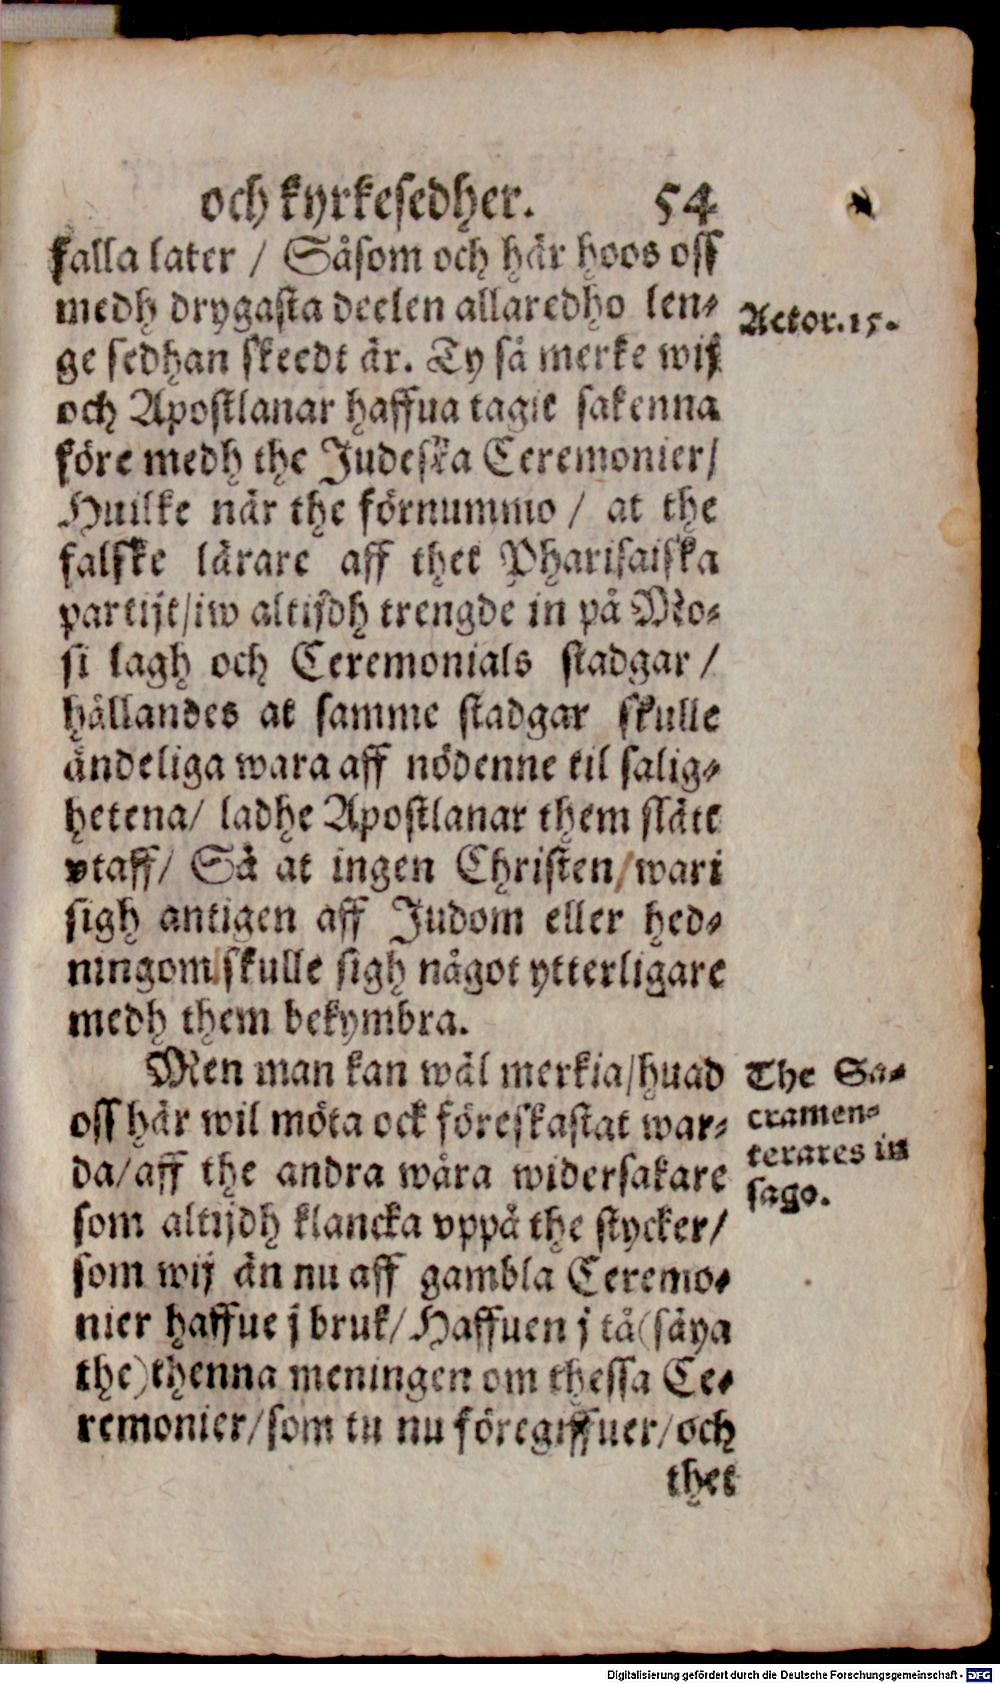 och kyrkesedher. 54
falla later / Såsom och här hoos oss
medh drygasta deelen allaredho len-
ge sedhan skeedt är. Ty så merke wij
och Apostlanar haffua tagit sakenna
före medh the Judeska Ceremonier/
Huilke när the förnummo / at the
falske lärare aff thet Pharisaiska
partijt/iw altijdh trengde in på Mo-
si lagh och Ceremonials stadgar /
hållandes at samme stadgar skulle
ändeliga wara aff nödenne til salig-
hetena/ ladhe Apostlanar them slätt
vtaff/ Så at ingen Christen/wari
sigh antigen aff Judom eller hed-
ningom/skulle sigh något ytterligare
medh them bekymbra.
Actor. 15.
Men man kan wäl merkia/huad
oss här wil möta ock föreskastat war-
da/aff the andra wåra widersakare
som altijdh klancka vppå the stycker/
som wij än nu aff gambla Ceremo-
nier haffue j bruk/Haffuen j tå(säya
the)thenna meningen om thessa Ce-
remonier/som tu nu föregiffuer/och
thet
The Sa-
cramen-
terares in
sago.
Digitalisierung gefördert durch die Deutsche Forschungsgemeinschaft - DFG